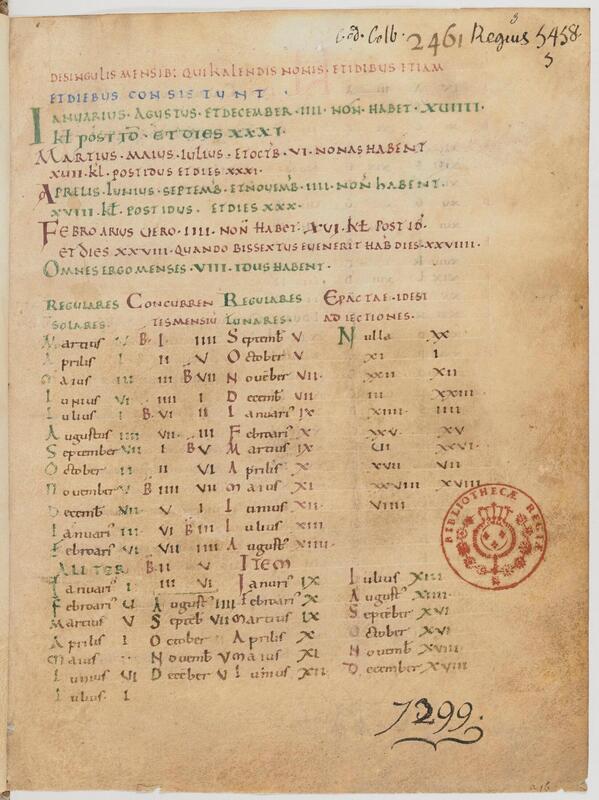 Cod. Colb. 2461 Regius 5458
3
5
DE SINGULIS MENSIB; QUI KALENDIS NONIS · ET IDIBUS ETIAM
ET DIEBUS CONSISTUNT ·
IANUARIUS · AGUSTUS · ET DECEMBER · IIII · NON̄ HABET · XVIIII ·
KL POST ID̄ · ET DIES XXXI ·
MARTIUS · MAIUS · IULIUS · ET OCTB̄ · VI · NONAS HABENT
XVII · KL · POST IDUS ET DIES XXXI ·
APRELIS · IUNIUS · SEPTEMB̄ · ET NOVEMB̄ · IIII · NON̄ HABENT ·
XVIII · KL · POST IDUS · ET DIES XXX ·
FEBROARIUS UERO · IIII · NON̄ HABET · XVI · KL POST ID̄ ·
ET DIES XXVIII · QUANDO BISSEXTUS EUENERIT HAB̄ DIES XXVIIII ·
OMNES ERGO MENSES · VIII · IDUS HABENT ·
REGULARES CONCURREN REGULARES EPACTAE · IDEST
SOLARES · TIS MENSIU LUNARES · ADIECTIONES ·
Martius V B I IIII Septemb̄ V Nulla XX
Aprilis I II V October V XI I
Maius III III B VII Nouēber VII XXII XII
Iunius VI IIII I Decemb̄ VII III XXIII
Iulius I B VI II Ianuari9 IX XIIII IIII
Augustus IIII VII III Febroari9 X XXV XV
September VII I B V Martius IX VI XXVI
October II II VI Aprilis X XVII VII
November V B IIII VII Maius XI XXVIII XVIII
Decemb̄ VII V I Iunius XII VIIII
Ianuari9 III VI B III Iulius XIII
Febroari9 VI VII IIII August9 XIIII
ALITER B II V ITEM
Ianuari9 I III VI Ianuari9 IX Iulius XIII
Febroari9 V August9 IIII Febroari9 X August9 XIIII
Martius V Septēb̄ VII Martius IX Septēber XVI
Aprilis I October Aprilis X October XVI
Maius Nouemb̄ V Maius XI Nouemb̄ XVIII
Iunius VI Decēber VI Iunius XII December XVIII
Iulius I
BIBLIOTHECÆ REGIÆ
7299.